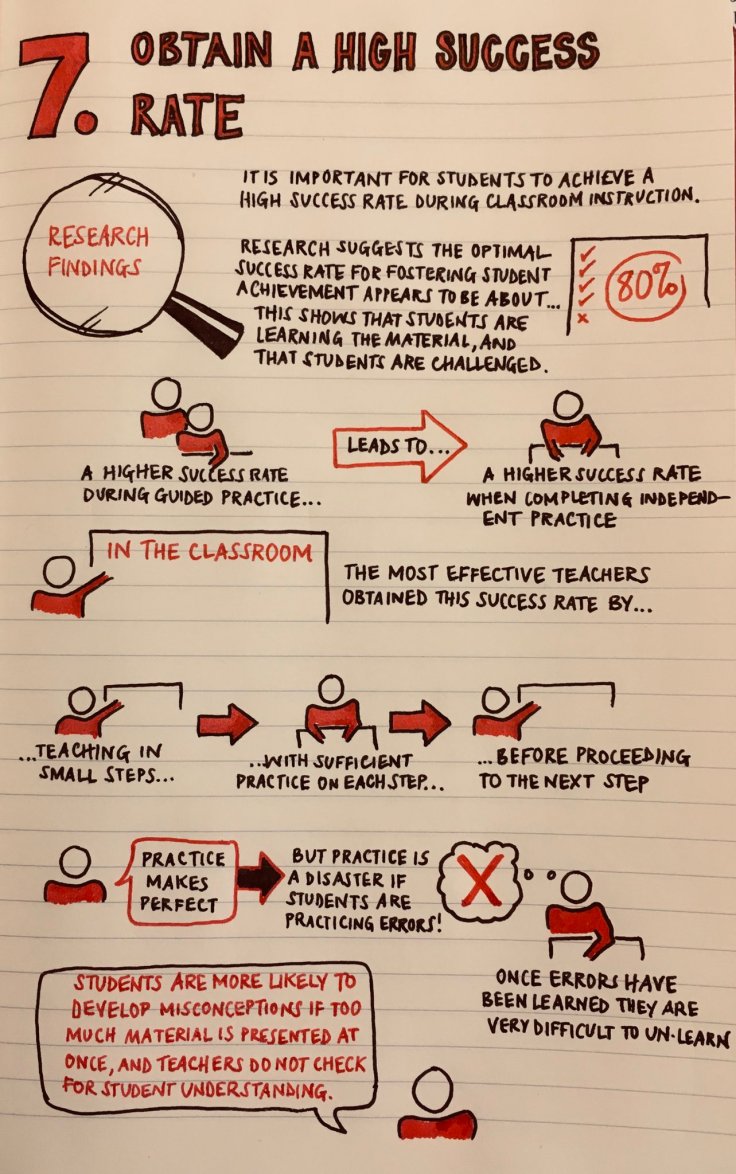 7. OBTAIN A HIGH SUCCESS
RATE
RESEARCH
FINDINGS
IT IS IMPORTANT FOR STUDENTS TO ACHIEVE A
HIGH SUCCESS RATE DURING CLASSROOM INSTRUCTION.
RESEARCH SUGGESTS THE OPTIMAL
SUCCESS RATE FOR FOSTERING STUDENT
ACHIEVEMENT APPEARS TO BE ABOUT...
80%
THIS SHOWS THAT STUDENTS ARE
LEARNING THE MATERIAL, AND
THAT STUDENTS ARE CHALLENGED.
A HIGHER SUCCESS RATE
DURING GUIDED PRACTICE...
LEADS TO...
A HIGHER SUCCESS RATE
WHEN COMPLETING INDEPEND-
ENT PRACTICE
IN THE CLASSROOM
THE MOST EFFECTIVE TEACHERS
OBTAINED THIS SUCCESS RATE BY...
...TEACHING IN
SMALL STEPS...
...WITH SUFFICIENT
PRACTICE ON EACH STEP...
...BEFORE PROCEEDING
TO THE NEXT STEP
PRACTICE
MAKES
PERFECT
BUT PRACTICE IS
A DISASTER IF
STUDENTS ARE
PRACTICING ERRORS!
ONCE ERRORS HAVE
BEEN LEARNED THEY ARE
VERY DIFFICULT TO UN-LEARN
STUDENTS ARE MORE LIKELY TO
DEVELOP MISCONCEPTIONS IF TOO
MUCH MATERIAL IS PRESENTED AT
ONCE, AND TEACHERS DO NOT CHECK
FOR STUDENT UNDERSTANDING.